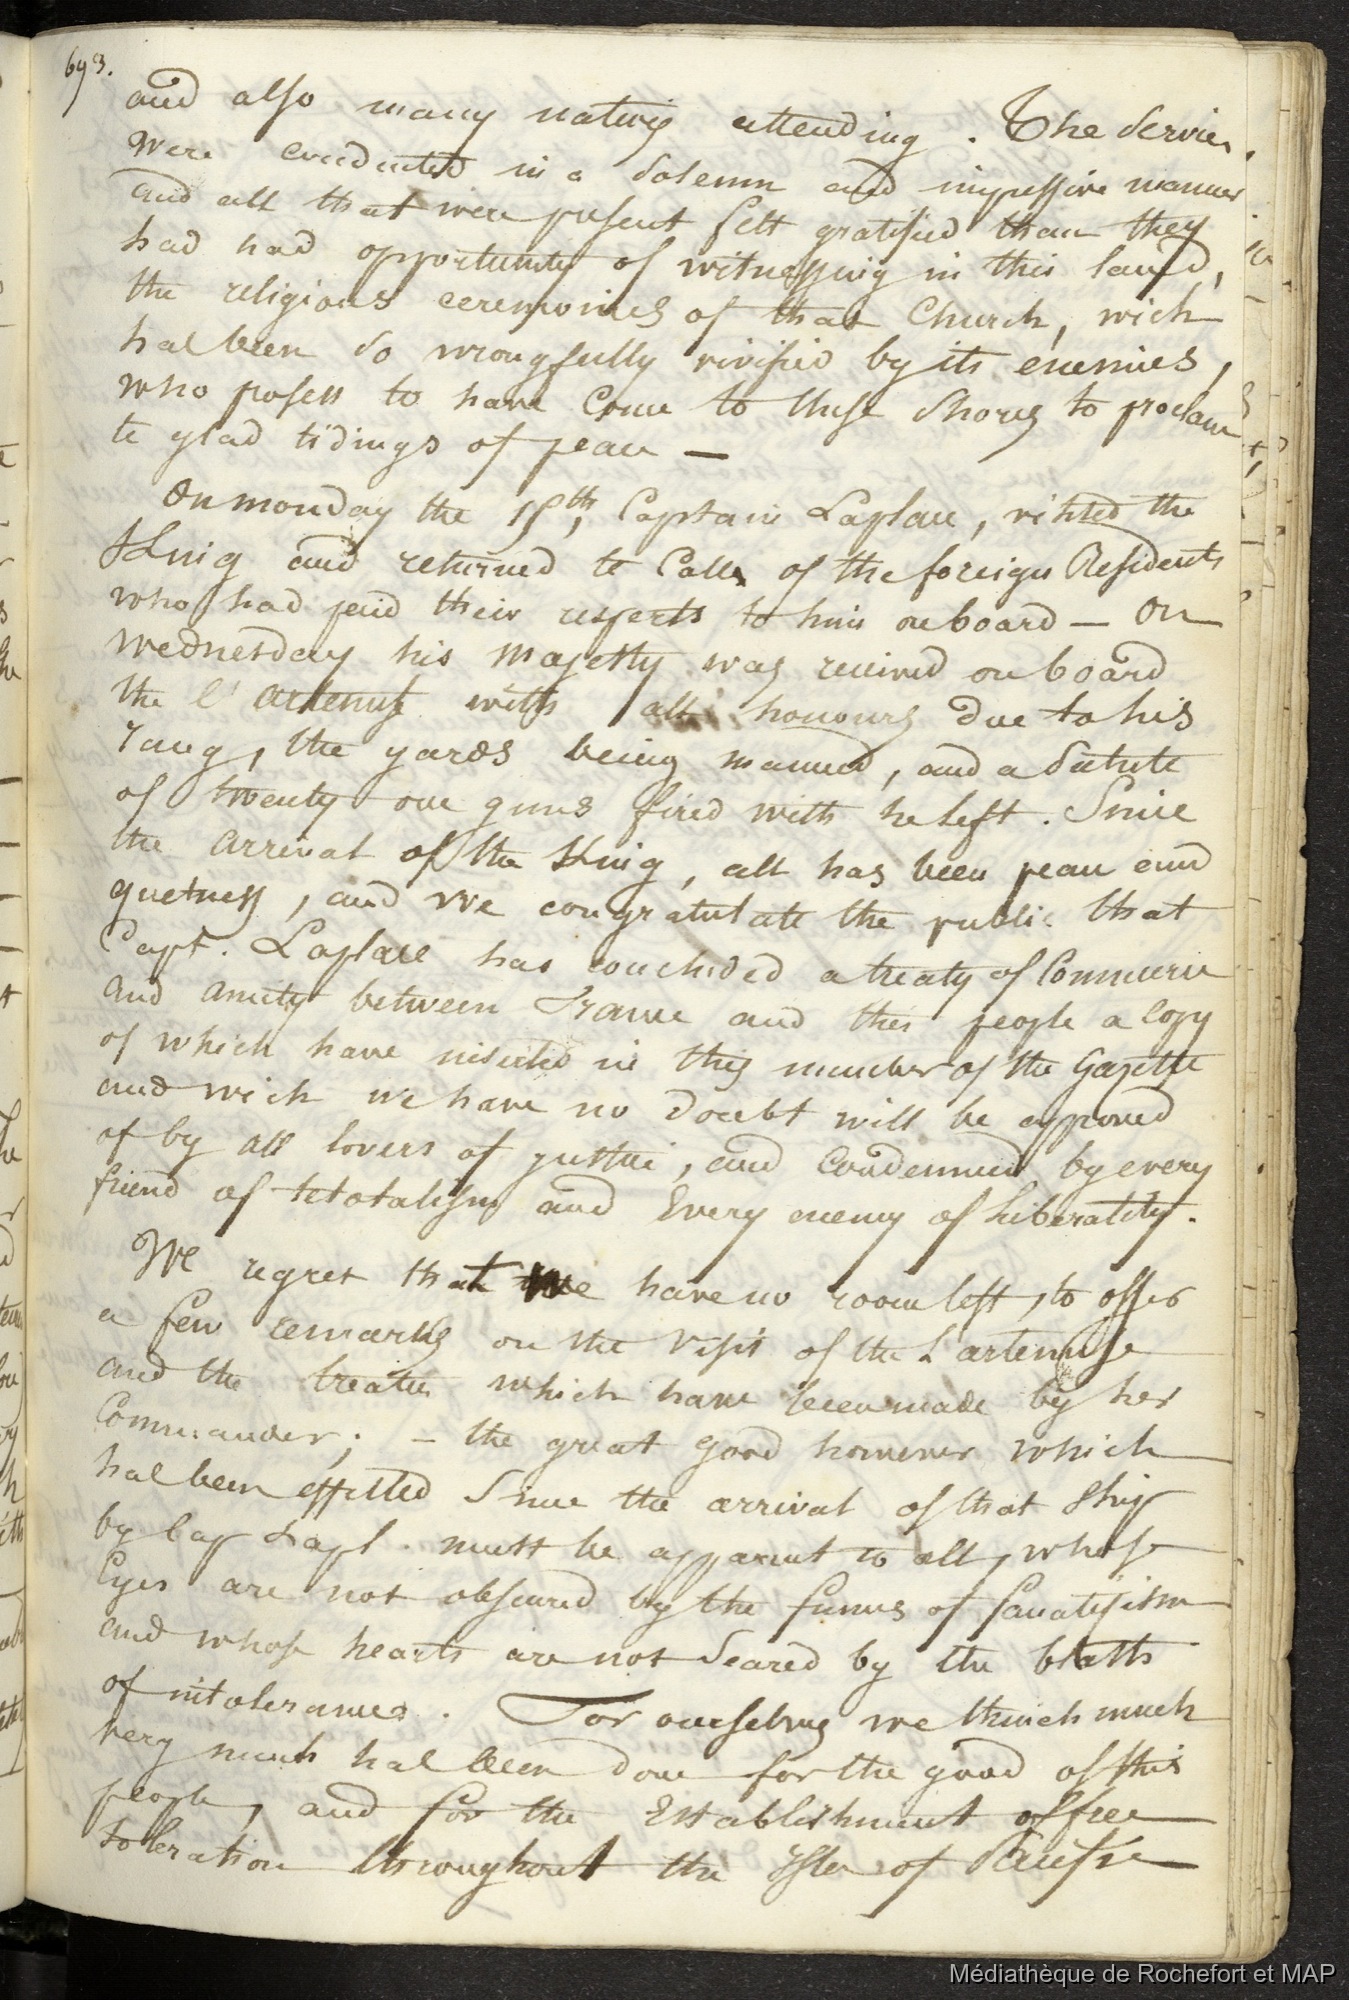 693.
and also many nativs attending. The Service
were conducted in a Solemn and impressive manner
and all that were present felt gratified than they
had had opportunity of witnessing in this land,
the religious ceremonies of that Church, wich
hal been so wrongfully vivified by its enemies,
who posess to have Come to these Shores to proclam
te glad tidings of peace —
On monday the 15th, Captain Laplace, visited the
King and returned te Calls of the foreign Residents
who had paid their respects to him on board — On
Wednesday his Majesty was received on board
the l'artemise with all honours due to his
rang, the yards being manned, and a Salute
of twenty one guns fired with he left. Since
the arrival of the King, all has been peace and
quetness, and we congratulate the public that
Capt. Laplace has concluded a treaty of Commerce
and amity between France and this people a Copy
of which have inserted in this number of the Gazette
and wich we have no doubt will be approved
of by all lovers of justice, and Condemned by every
friend of tetotalism and Every enemy of Liberality.
We regret that we have no room left, to offer
a few remarks on the Visit of the L'artemise
and the treaties which have been made by her
Commander; — the great good however which
hal been effected Since the arrival of that Ship
by Cap Lapl. must be apparent to all, whose
Eyes are not obscured by the fumes of fanaticism
and whose hearts are not Seared by the blasts
of intolerance. For ourselves we think much
very much hal been done for the good of this
people, and for the Establishment of free
toleration throughout the Isles of Pacific
Médiathèque de Rochefort et MAP